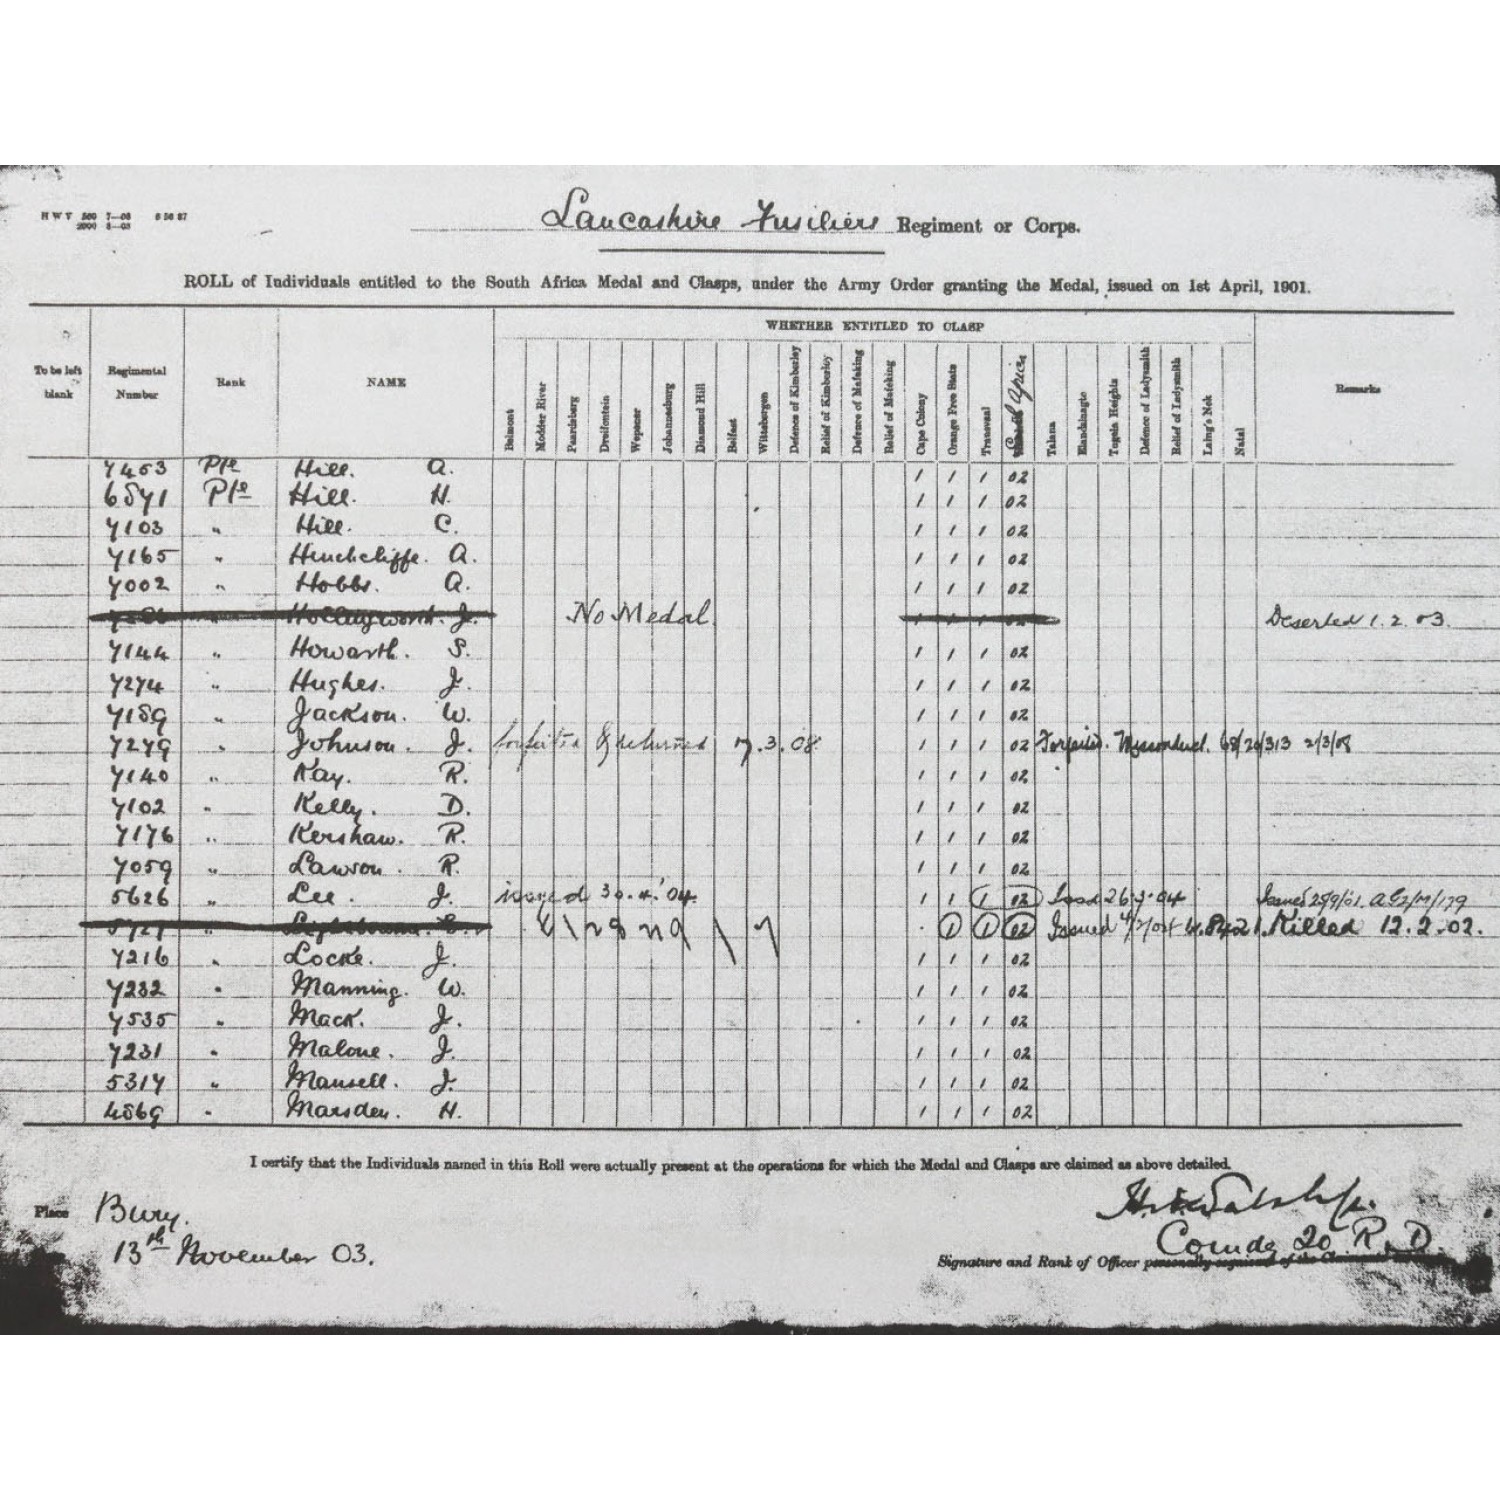 HWV 500 7—03 8 56 87
2000 8—03
Lancashire Fusiliers Regiment or Corps.
ROLL of Individuals entitled to the South Africa Medal and Clasps, under the Army Order granting the Medal, issued on 1st April, 1901.
WHETHER ENTITLED TO CLASP
To be left blank Regimental Number Rank NAME Belmont Modder River Paardeberg Dreifontein Wepener Johannesburg Diamond Hill Belfast Wittebergen Defence of Kimberley Relief of Kimberley Defence of Mafeking Relief of Mafeking Cape Colony Orange Free State Transvaal South Africa Talana Elandslaagte Tugela Heights Defence of Ladysmith Relief of Ladysmith Laing's Nek Natal Remarks
7453 Pte Hill. A. 1 1 1 02
6571 Pte Hill. H. 1 1 1 02
7103 " Hill. C. 1 1 1 02
7165 " Hinchcliffe. A. 1 1 1 02
7002 " Hobbs. A. 1 1 1 02
" Hollingworth. J. No Medal 1 1 1 02 Deserted 1.2.03.
7144 " Howarth. S. 1 1 1 02
7274 " Hughes. J. 1 1 1 02
7189 " Jackson. W. 1 1 1 02
7279 " Johnson. J. forfeited & returned 17.3.08 1 1 1 02 Forfeited. Misconduct. 68/20/313 2/3/08
7140 " Kay. R. 1 1 1 02
7102 " Kelly. D. 1 1 1 02
7176 " Kershaw. R. 1 1 1 02
7059 " Lawson. R. 1 1 1 02
5626 " Lee. J. issued 30.4.'04. 1 1 1 02 Issd 26 04 Issued
" 1 1 02 Issued Killed 12.2.02.
7216 " Locke. J. 1 1 1 02
7232 " Manning. W. 1 1 1 02
7535 " Mack. J. 1 1 1 02
7231 " Malone. J. 1 1 1 02
5317 " Mansell. J. 1 1 1 02
4869 " Marsden. H. 1 1 1 02
I certify that the Individuals named in this Roll were actually present at the operations for which the Medal and Clasps are claimed as above detailed.
Place Bury.
13th November 03.
Comdg 20 R. D.
Signature and Rank of Officer personally cognisant of the